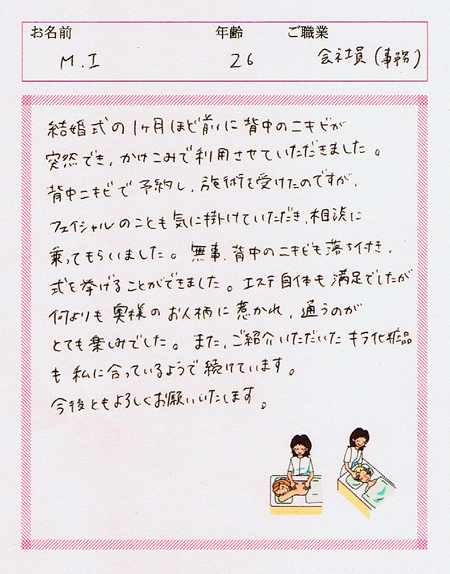 お名前 年齢 ご職業
M.I 26 会社員(事務)
結婚式の1ヶ月ほど前に背中のニキビが
突然でき、かけこみで利用させていただきました。
背中ニキビで予約し、施術を受けたのですが、
フェイシャルのことも気に掛けていただき、相談に
乗ってもらいました。無事、背中のニキビも落ち付き、
式を挙げることができました。エステ自体も満足でしたが
何よりも奥様のお人柄に惹かれ、通うのが
とても楽しみでした。また、ご紹介いただいたキラ化粧品
も私に合っているようで続けています。
今後ともよろしくお願いいたします。